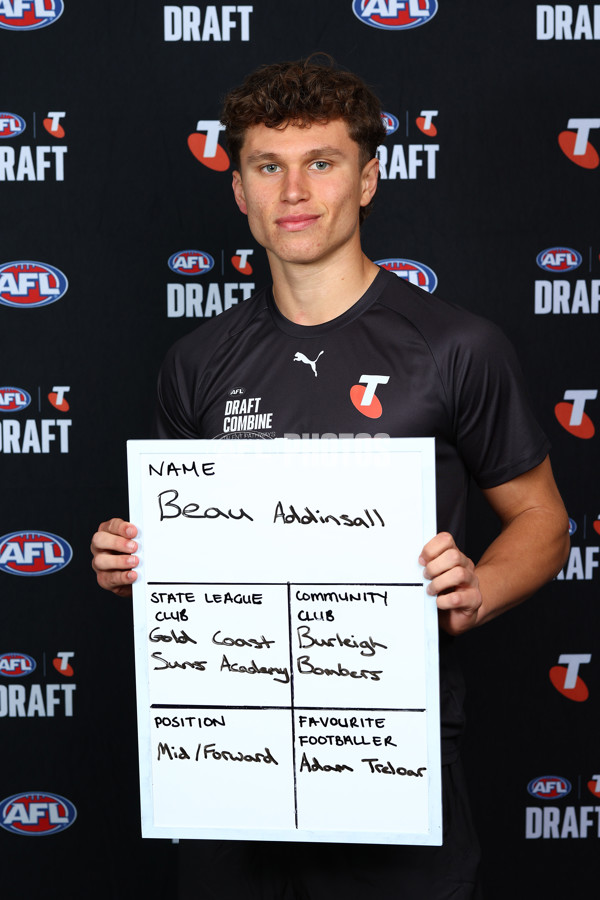 AFL
AFL
DRAFT
DRAFT
AFL T
DRAFT
T
AFL T
DRAFT
T
AFL
AFL T
DRAFT
AFL
AFL
DRAFT
AFL T
DRAFT
T
AFL
DRAFT COMBINE
T
PHOTOS
NAME
Beau Addinsall
STATE LEAGUE
CLUB
Gold Coast
Suns Academy
COMMUNITY
CLUB
Burleigh
Bombers
POSITION
Mid/Forward
FAVOURITE
FOOTBALLER
Adam Treloar
AFL
DRAFT
AFL T
DRAFT
T
AFL
AFL
DRAFT